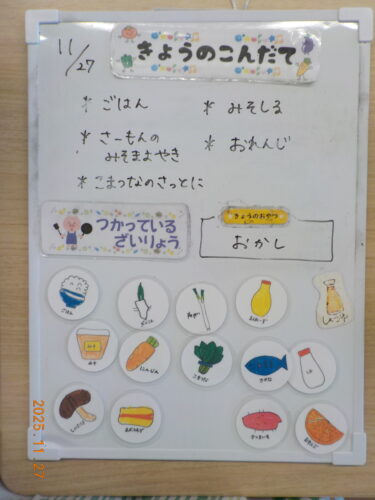 11/27
きょうのこんだて
* ごはん
* みそしる
* さーもんの
みそまよやき
* おれんじ
* こまつなのさっとに
つかっている
ざいりょう
きょうのおやつ
おかし
ごはん
だいこん
ねぎ
まよねーず
しょうゆ
みそ
にんじん
こまつな
さかな
しいたけ
あぶらあげ
さつまいも
おれんじ
2025.11.27